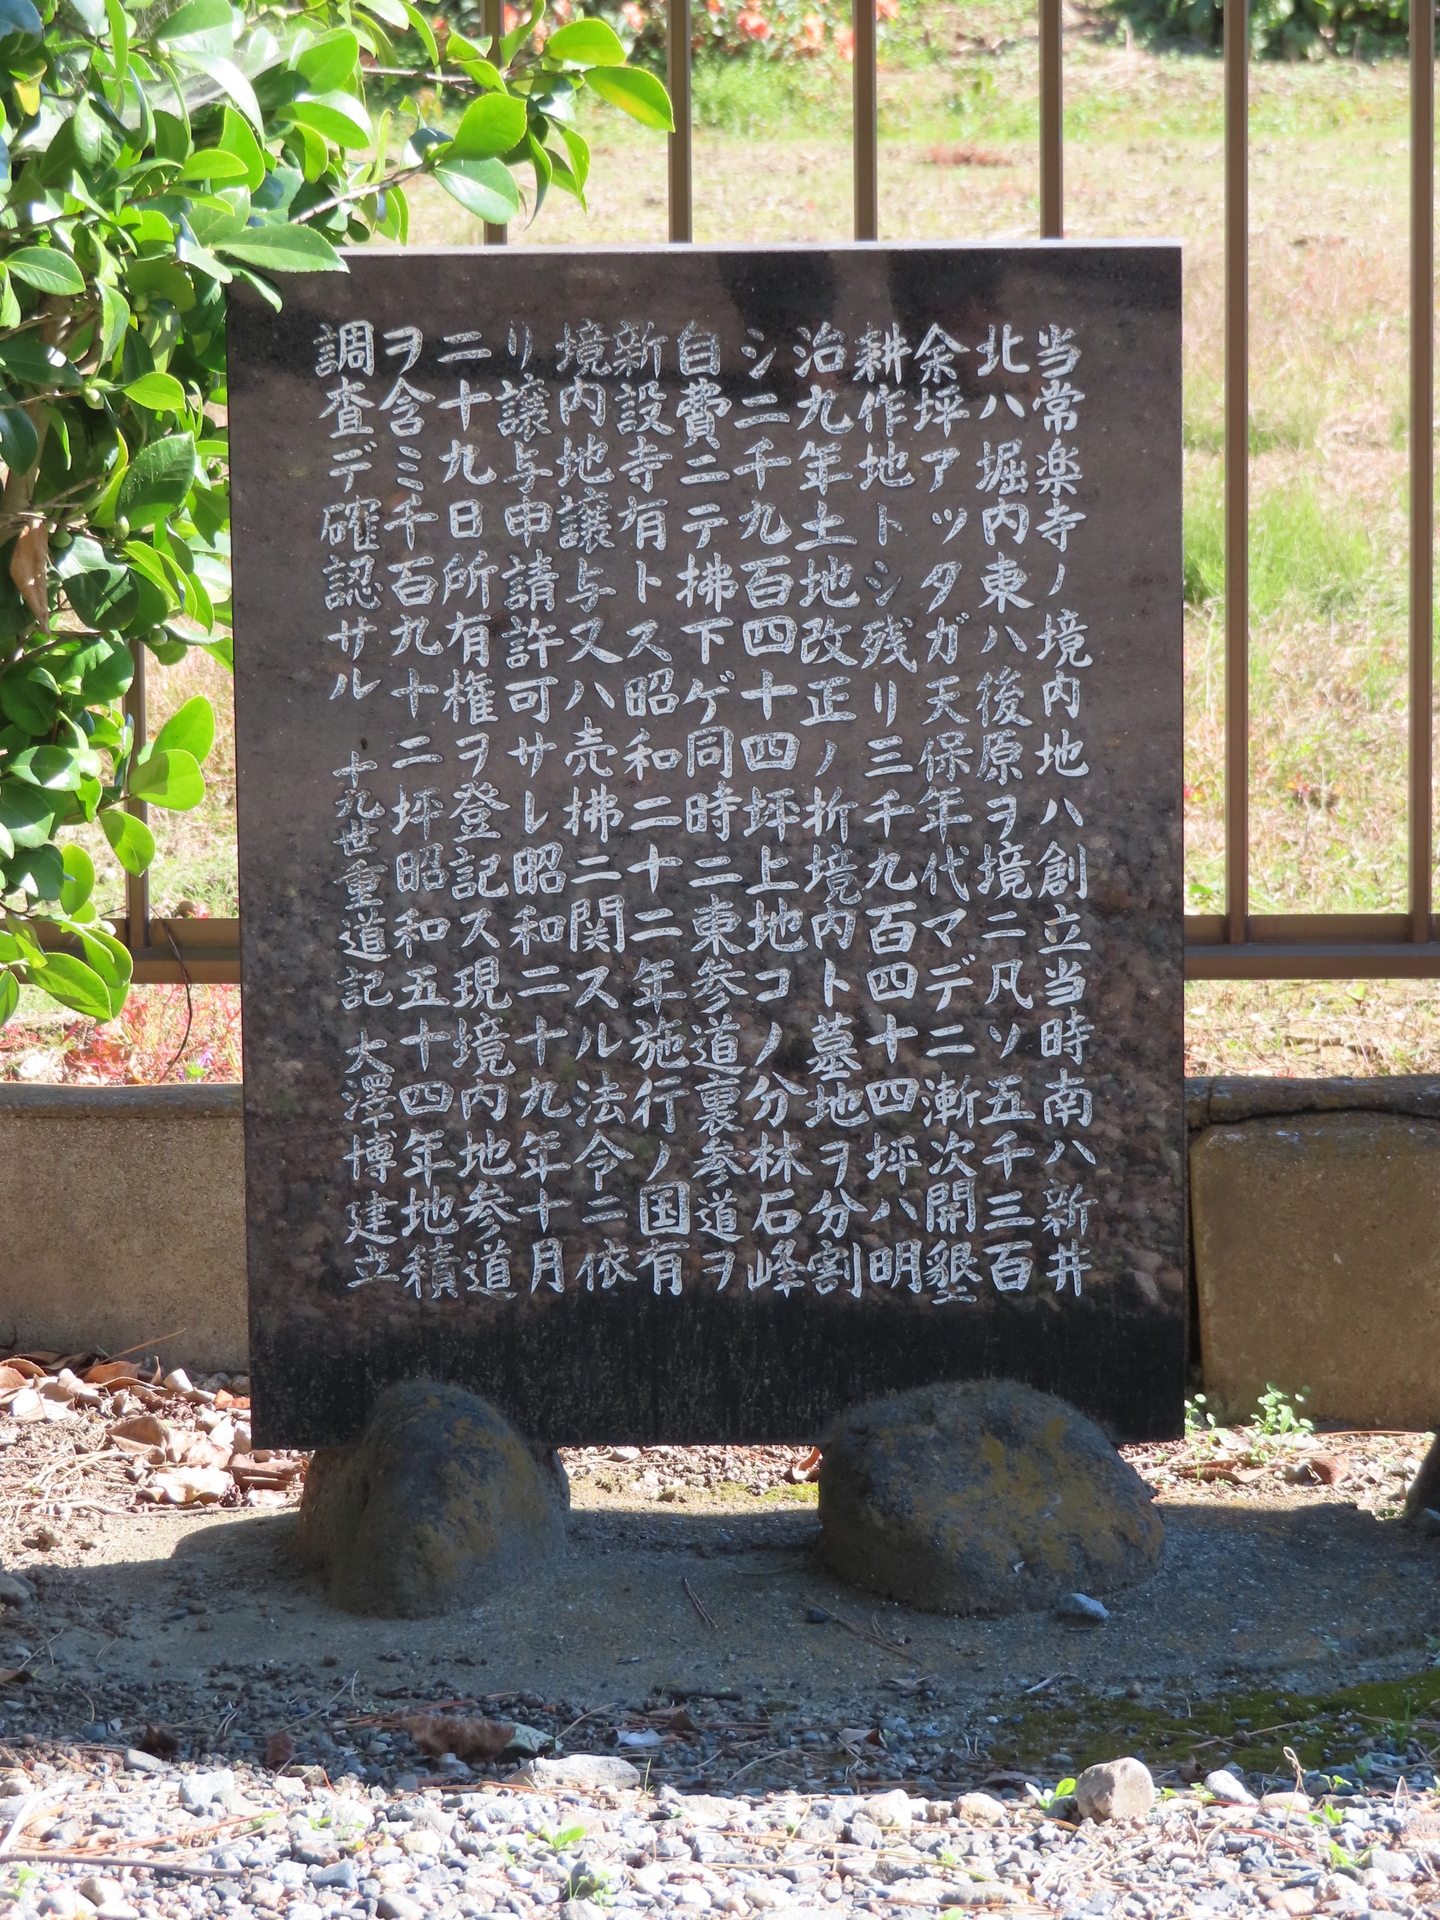 当常楽寺ノ境内地ハ創立当時南ハ新井
北ハ堀内東ハ後原ヲ境ニ凡ソ五千三百
余坪アッタガ天保年代マデニ漸次開墾
耕作地トシ残リ三千九百四十四坪ハ明
治九年土地改正ノ折境内ト墓地ヲ分割
シ二千九百四十四坪上地コノ分林石峰
自費ニテ拂下ゲ同時ニ東参道裏参道ヲ
新設寺有トス昭和二十二年施行ノ国有
境内地譲与又ハ売拂ニ関スル法令ニ依
リ譲与申請許可サレ昭和二十九年十月
二十九日所有権ヲ登記ス現境内地参道
ヲ含ミ千百九十二坪昭和五十四年地積
調査デ確認サル 十九世重道記 大澤博建立